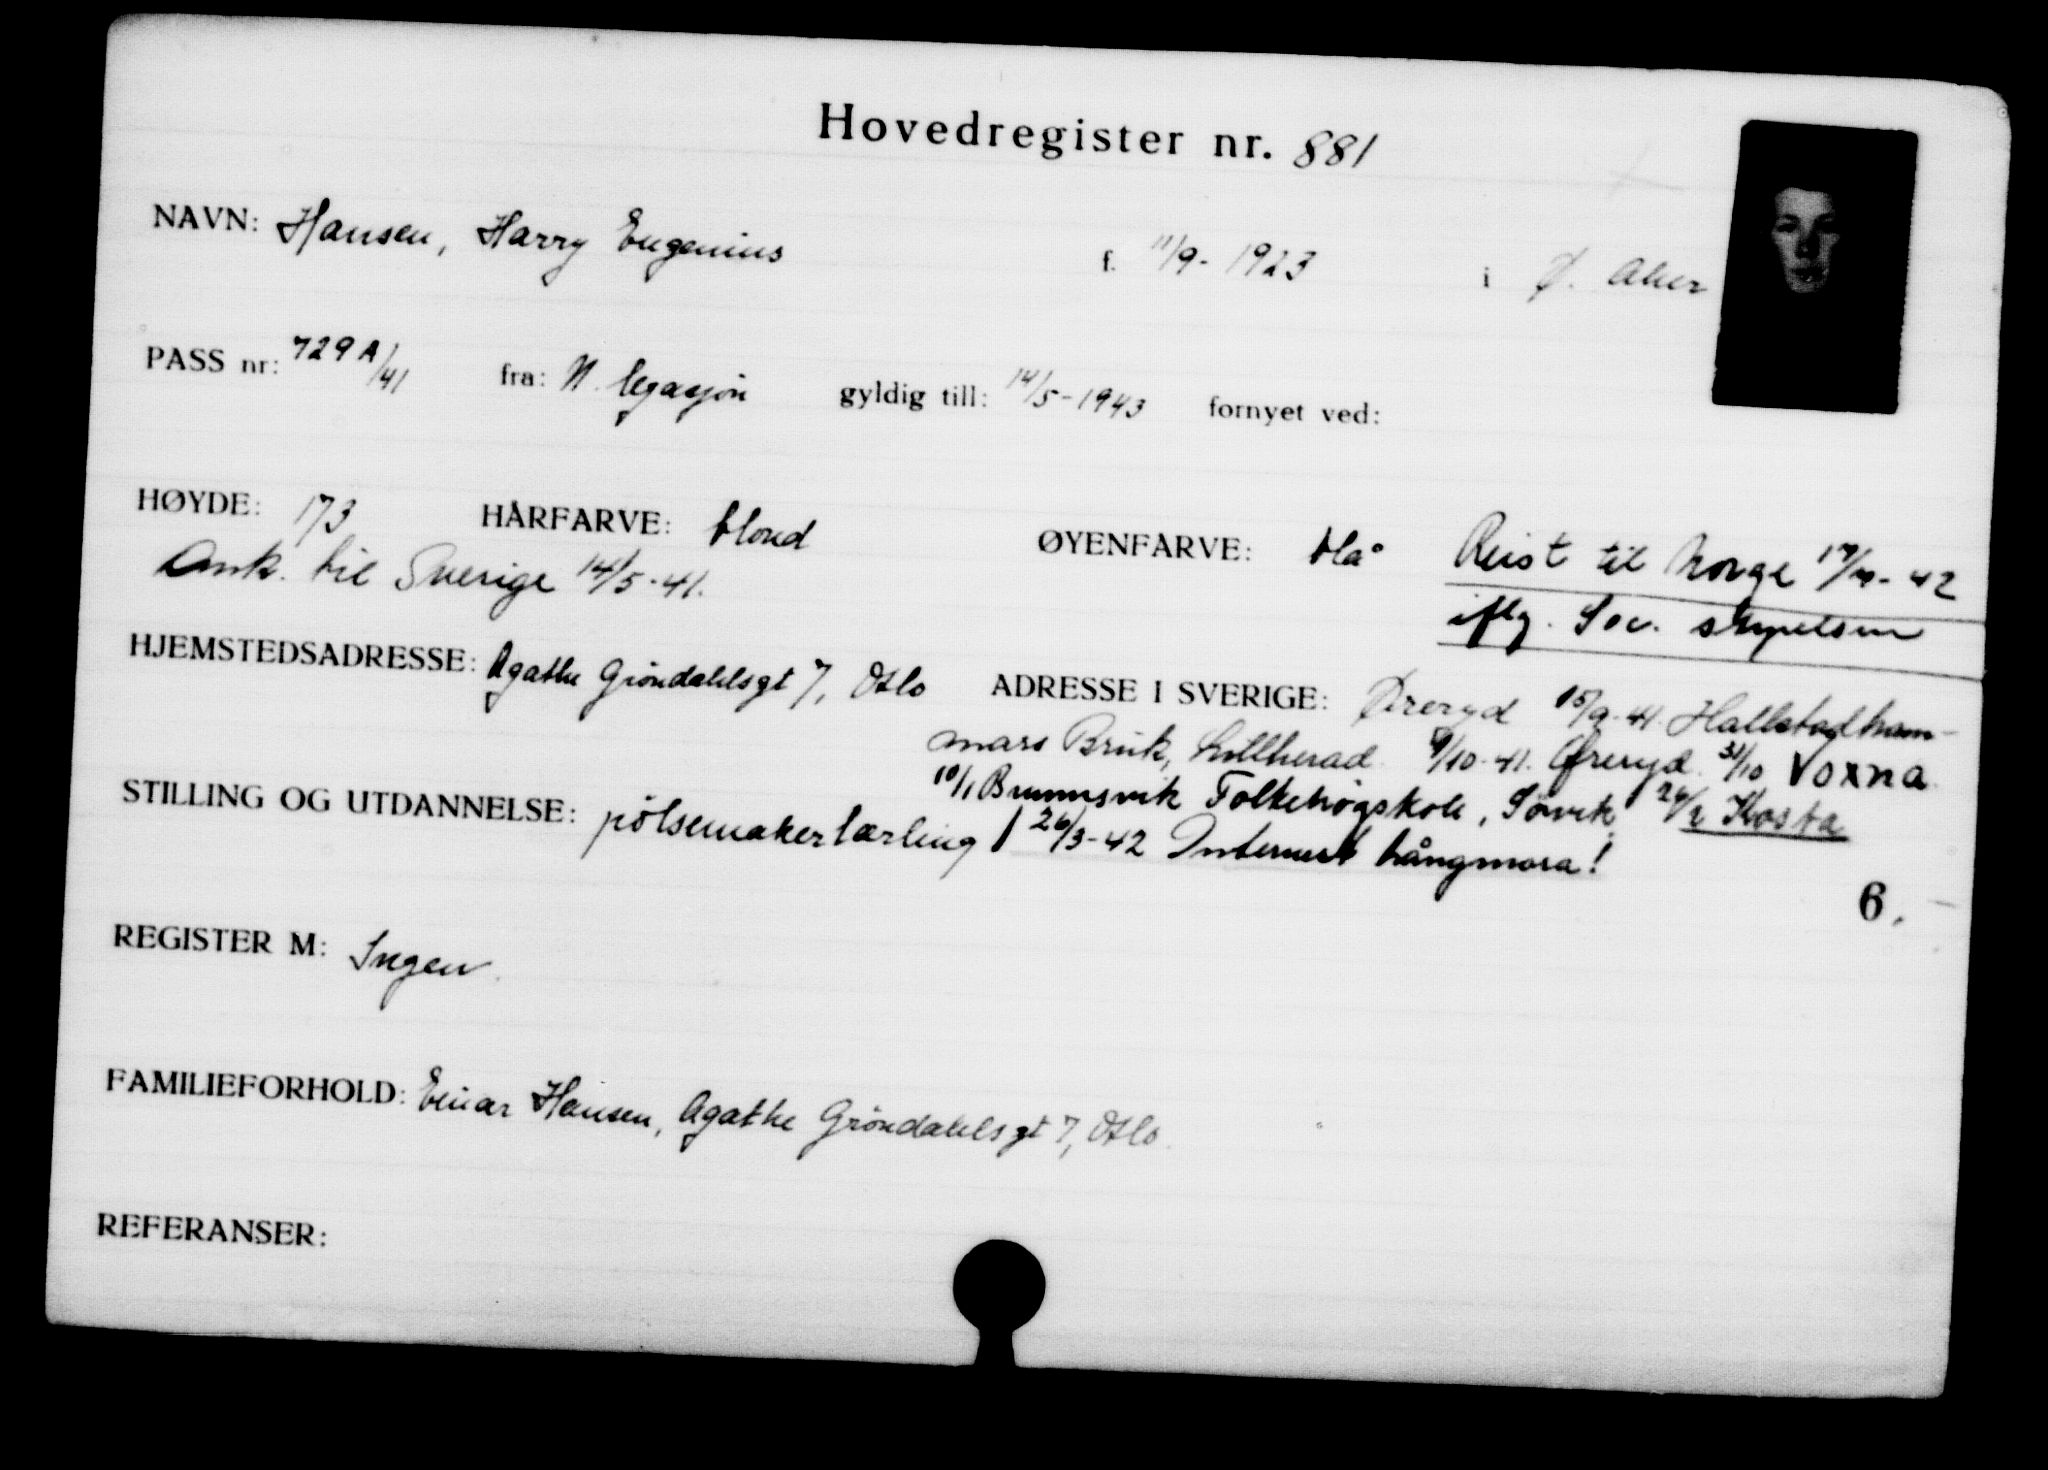 Hovedregister nr. 881
NAVN: Hansen, Harry Eugenius f. 11/9-1923 i Ø. Aker
PASS nr: 729 A/41 fra: N. legasjon gyldig till: 14/5-1943 fornyet ved:
HØYDE: 173 HÅRFARVE: blond ØYENFARVE: blå Reist til Norge -42
Ank. til Sverige 14/5-41. iflg. Soc. styrelsen
HJEMSTEDSADRESSE: Agathe Gröndahlsgt 7, Oslo ADRESSE I SVERIGE: Øreryd 15/9-41. Hallstadham-
mars Bruk, 9/10-41. Øreryd. 31/10 Voxna
10/1 Brunnsvik Folkehøgskole, Sörvik 26/2 Kosta
STILLING OG UTDANNELSE: pölsemakerlærling 26/3-42 Internert Långmora!
6.
REGISTER M: Ingen
FAMILIEFORHOLD: Einar Hansen, Agathe Gröndahlsgt 7, Oslo.
REFERANSER: